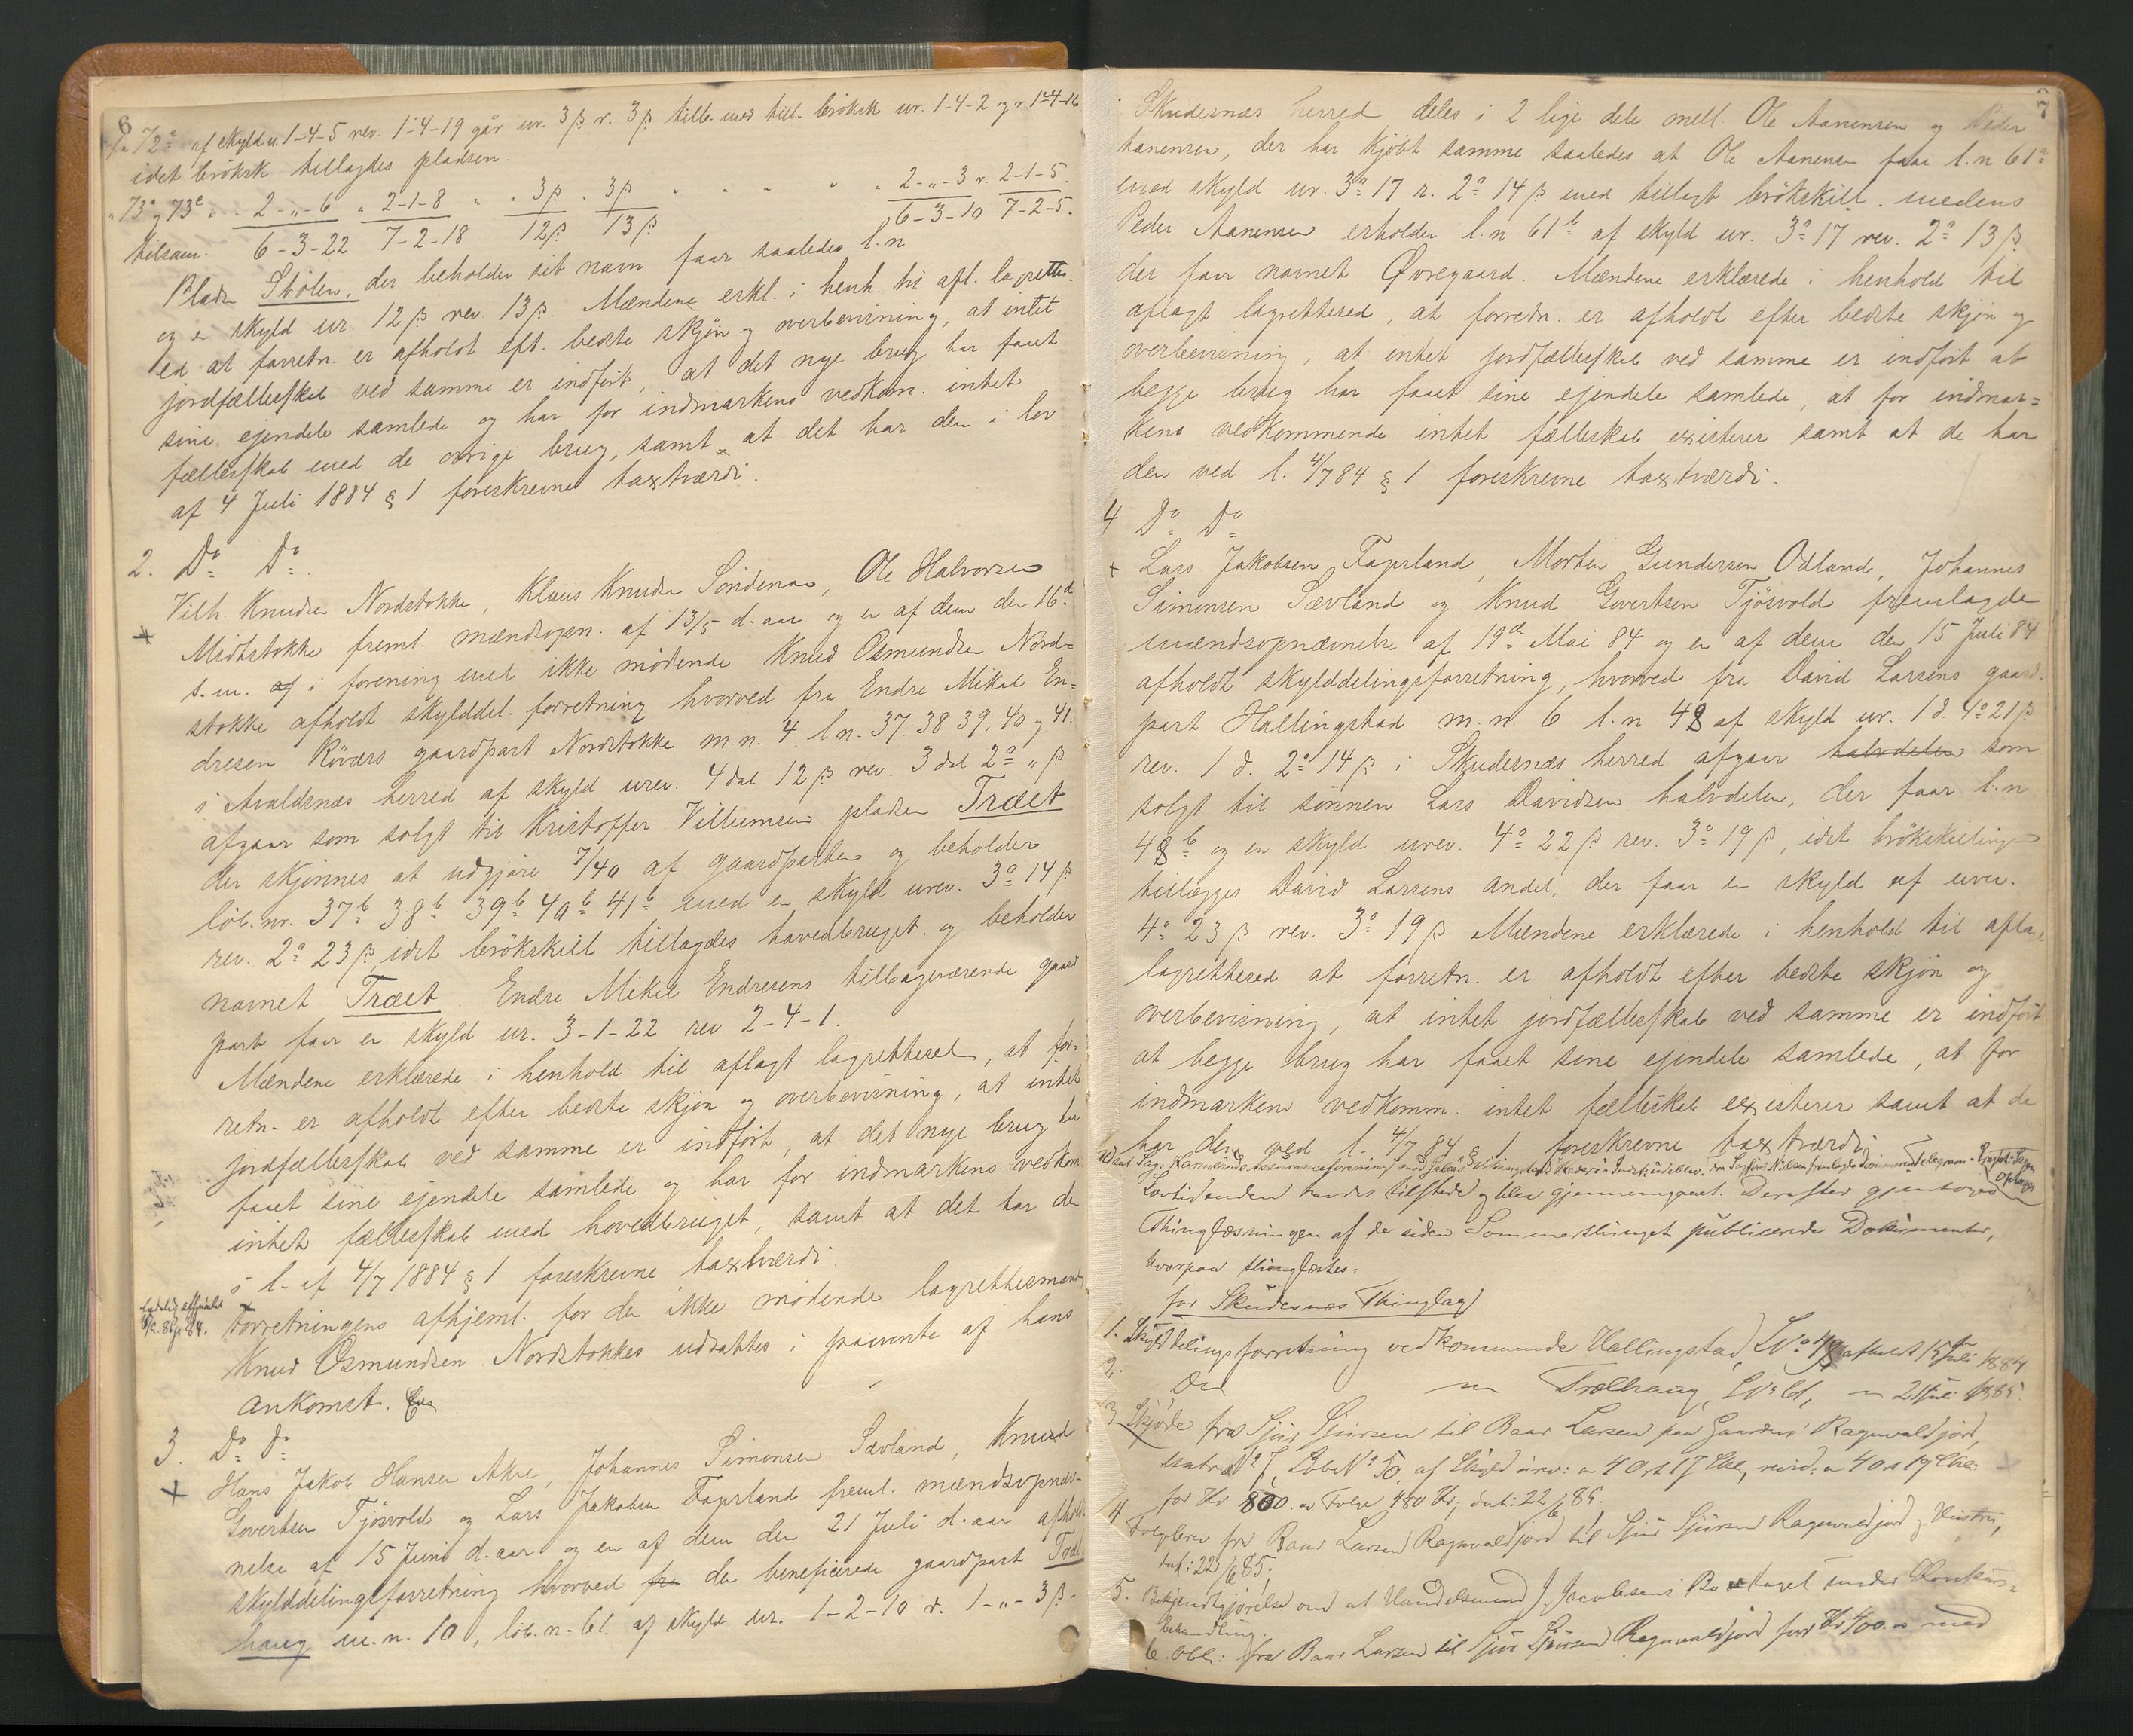 6
72a af skyld u. 1-4-5 rev. 1-4-19 går ur. 3 β r. 3 β till. med till. brøksk ur. 1-4-2 og r 1-4-16
idet brøksk tillagdes pladsen.
" 73a og 73c " " 2-"-6 " 2-1-8 " " 3β " 3β " " " " " 2-"-3 r. 2-1-5.
tilsam. 6-3-22 7-2-18 12β 13β 6-3-10 7-2-5.
Pladsn Stølen, der beholder sit navn faar saaledes l.n
og en skyld ur. 12 β rev. 13 β. Mændene erkl. i henh. til afl. lagrettes-
ed at forretn. er afholdt eft. bedste skjøn og overbevisning, at intet
jordfællesskab ved samme er indført, at det nye brug har faaet
sine ejendele samlede og har for indmarkens vedkom. intet
fællesskab med de øvrige brug, samt at det har den i lov
af 4 Juli 1884 § 1 foreskrevne taxtværdi.
2. Do Do
Vilh. Knudsen Nordstokke, Klaus Knudsen Søndenaa, Ole Halvorsen
Midtstokke freml. mændsopn. af 13/5 d. aar og en af dem den 16d
s.m. af i forening med ikke mødende Knud Osmundsen Nord=
stokke afholdt skylddel. forretning hvorved fra Endre Mikal En=
dresen Røværs gaardpart Nordstokke m.n. 4 l.n. 37. 38 39, 40 og 41.
i Avaldsnæs herred af skyld urev. 4 dal 12 β rev. 3 dal 2o " β
afgaar som solgt til Kristoffer Villumsen pladsen Træet
der skjønnes at udgjøre 7/40 af gaardparten og beholder
løb.nr. 37b 38b 39b 40b 41b med en skyld urev. 3o 14 β
rev. 2o 23 β, idet brøkskill tillagdes hovedbruget. og beholder
navnet Træet. Endre Mikal Endresens tilbageværende gaard
part faar en skyld ur. 3-1-22 rev 2-4-1.
Mændene erklærede i henhold til aflagt lagrettesed, at for=
retn. er afholdt efter bedste skjøn og overbevisning, at intet
jordfællesskab ved samme er indført, at det nye brug har
faaet sine ejendele samlede og har for indmarkens vedkom
intet fællesskab med hovedbruget, samt at det har den
i l. af 4/7 1884 § 1 foreskrevne taxtværdi.
Forretningens afhjeml. for den ikke mødende lagrettesmand
Knud Osmundsen Nordstokkes udsattes i paavente af hans
ankomst.
3. Do Do
Hans Jakob Hansen Akre, Johannes Simonsen Sævland, Knud
Govertsen Tjøsvold og Lars Jakobsen Fagerland freml. mændsopnæv-
nelse af 15 Juni d. aar og en af dem den 21 Juli d. aar afholdt
skylddelingsforretning hvorved fra den beneficerede gaardpart Træl
haug m.n. 10, løb.n. 61. af skyld ur. 1-2-10 r. 1-"-3 β.
7
Skudesnæs herred deles i 2 lige dele mell. Ole Aanensen og Peder
Aanensen, der har kjøbt samme saaledes at Ole Aanensen faar l.n 61a
med skyld ur. 3o 17 r. 2o 14 β med tillagt brøkskill. medens
Peder Aanensen erholder l.n 61b af skyld ur. 3o 17 rev. 2o 13 β
der faar navnet Øvregaard. Mændene erklærede i henhold til
aflagt lagrettesed, at forretn. er afholdt efter bedste skjøn og
overbevisning, at intet jordfællesskab ved samme er indført at
begge brug har faaet sine ejendele samlede, at for indmar=
kens vedkommende intet fælleskab existerer samt at de har
den ved l. 4/7 84 § 1 foreskrevne taxtværdi.
4 Do Do
Lars Jakobsen Fagerland, Morten Gundersen Ødland, Johannes
Simonsen Sævland og Knud Govertsen Tjøsvold fremlagde
mændsopnævnelse af 19de Mai 84 og en af dem den 15 Juli 84
afholdt skylddelingsforretning, hvorved fra David Larsens gaard.
part Hallingstad m.n. 6 l.n 48 af skyld ur. 1 d. 4o 21 β
rev. 1 d. 2o 14 β i Skudesnæs herred afgaar halvdelen som
solgt til sønnen Lars Davidsen halvdelen, der faar l.n
48b og en skyld urev. 4o 22 β rev. 3o 19 β, idet brøkskillingen
tillægges David Larsens andel, der faar en skyld af urev.
4o 23 β rev. 3o 19 β Mændene erklærede i henhold til aflagt
lagrettesed at forretn. er afholdt efter bedste skjøn og
overbevisning, at intet jordfællesskab ved samme er indført
at begge brug har faaet sine ejendele samlede, at for
indmarkens vedkomm. intet fælleskab existerer samt at de
har den ved l. 4/7 84 § 1 foreskrevne taxtværdi
Lovtidenden havdes tilstede og blev gjennemgaaet. Derefter gjentoges
Thinglæsningen af de siden Sommerthinget publicerede Dokumenter,
hvorpaa thinglæstes.
for Skudesnæs Thinglag
1. Skylddelingsforretning vedkommende Hallingstad, L No 48 afholdt 15 Juli 1884
2. Do " Trælhaug, L No 61, " 21 Juli 1885.
3 Skjøde fra Sjur Sjursen til Baar Larsen paa Gaarden Ragnvaldsjord,
Matr. No 7, Løbe No 50, af Skyld urev: " 4 Ort 17 Skl, revid: " 4 Ort 19 Skl:
for Kr 800. " Folge 480 Kr, dat: 22/6 85.
4 Folgebrev fra Baar Larsen Ragnvaldsjord til Sjur Sjursen Ragnvaldsjord og Hustru,
dat: 22/6 85.
5. Bekjendtgjørelse om at Handelsmand J. Jacobsens Bo er taget under Konkurs=
behandling.
6. Obl.: fra Baar Larsen til Sjur Sjursen Ragnvaldsjord for Kr 400.00 med